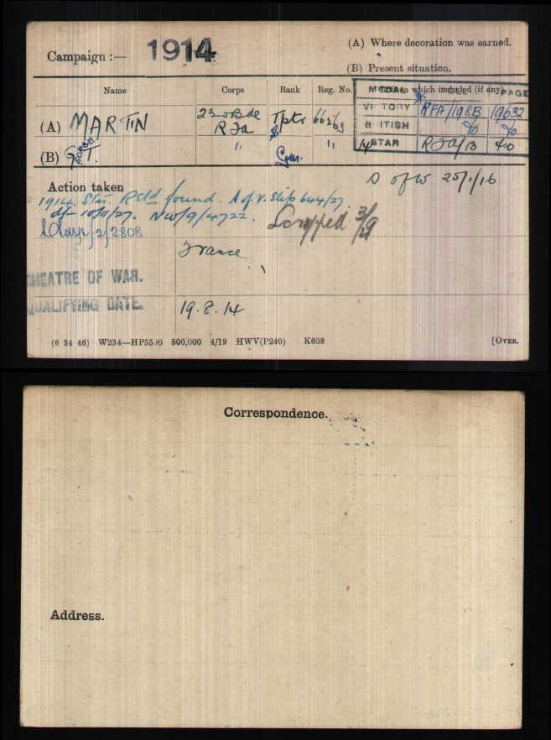 Campaign :— 1914
(A) Where decoration was earned.
(B) Present situation.
Name Corps Rank Reg. No. Roll on which included (if any)
MEDAL PAGE
(A) MARTIN 23rd Bde RFA Tptr 66363
VICTORY RFA/198B 19632
BRITISH do do
14 STAR RFA/13 40
(B) George T. " Gnr. "
Action taken
D of W 25/1/16
1914 Star Retd found. A of V. Slip 644/27.
d/- 10/11/27. NW/9/4722. Scrapped 3/29
2/2808
France
THEATRE OF WAR.
QUALIFYING DATE. 19.8.14
(6 34 46) W234—HP5590 500,000 4/19 HWV(P240) K608 [OVER.
Correspondence.
Address.